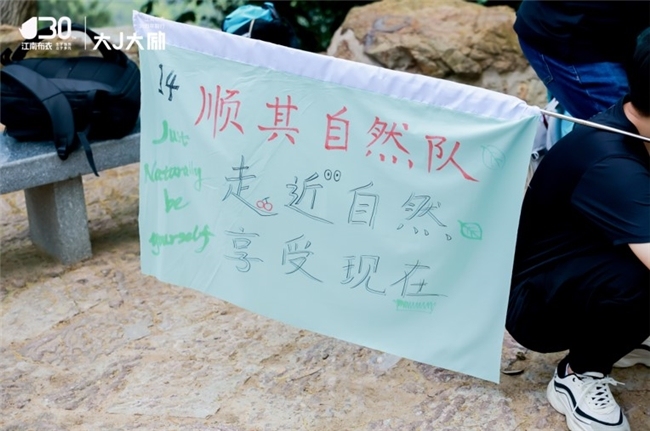 30
江南布衣
大J大励
14
顺其自然队
Just
Naturally
be
yourself
走近自然
享受现在